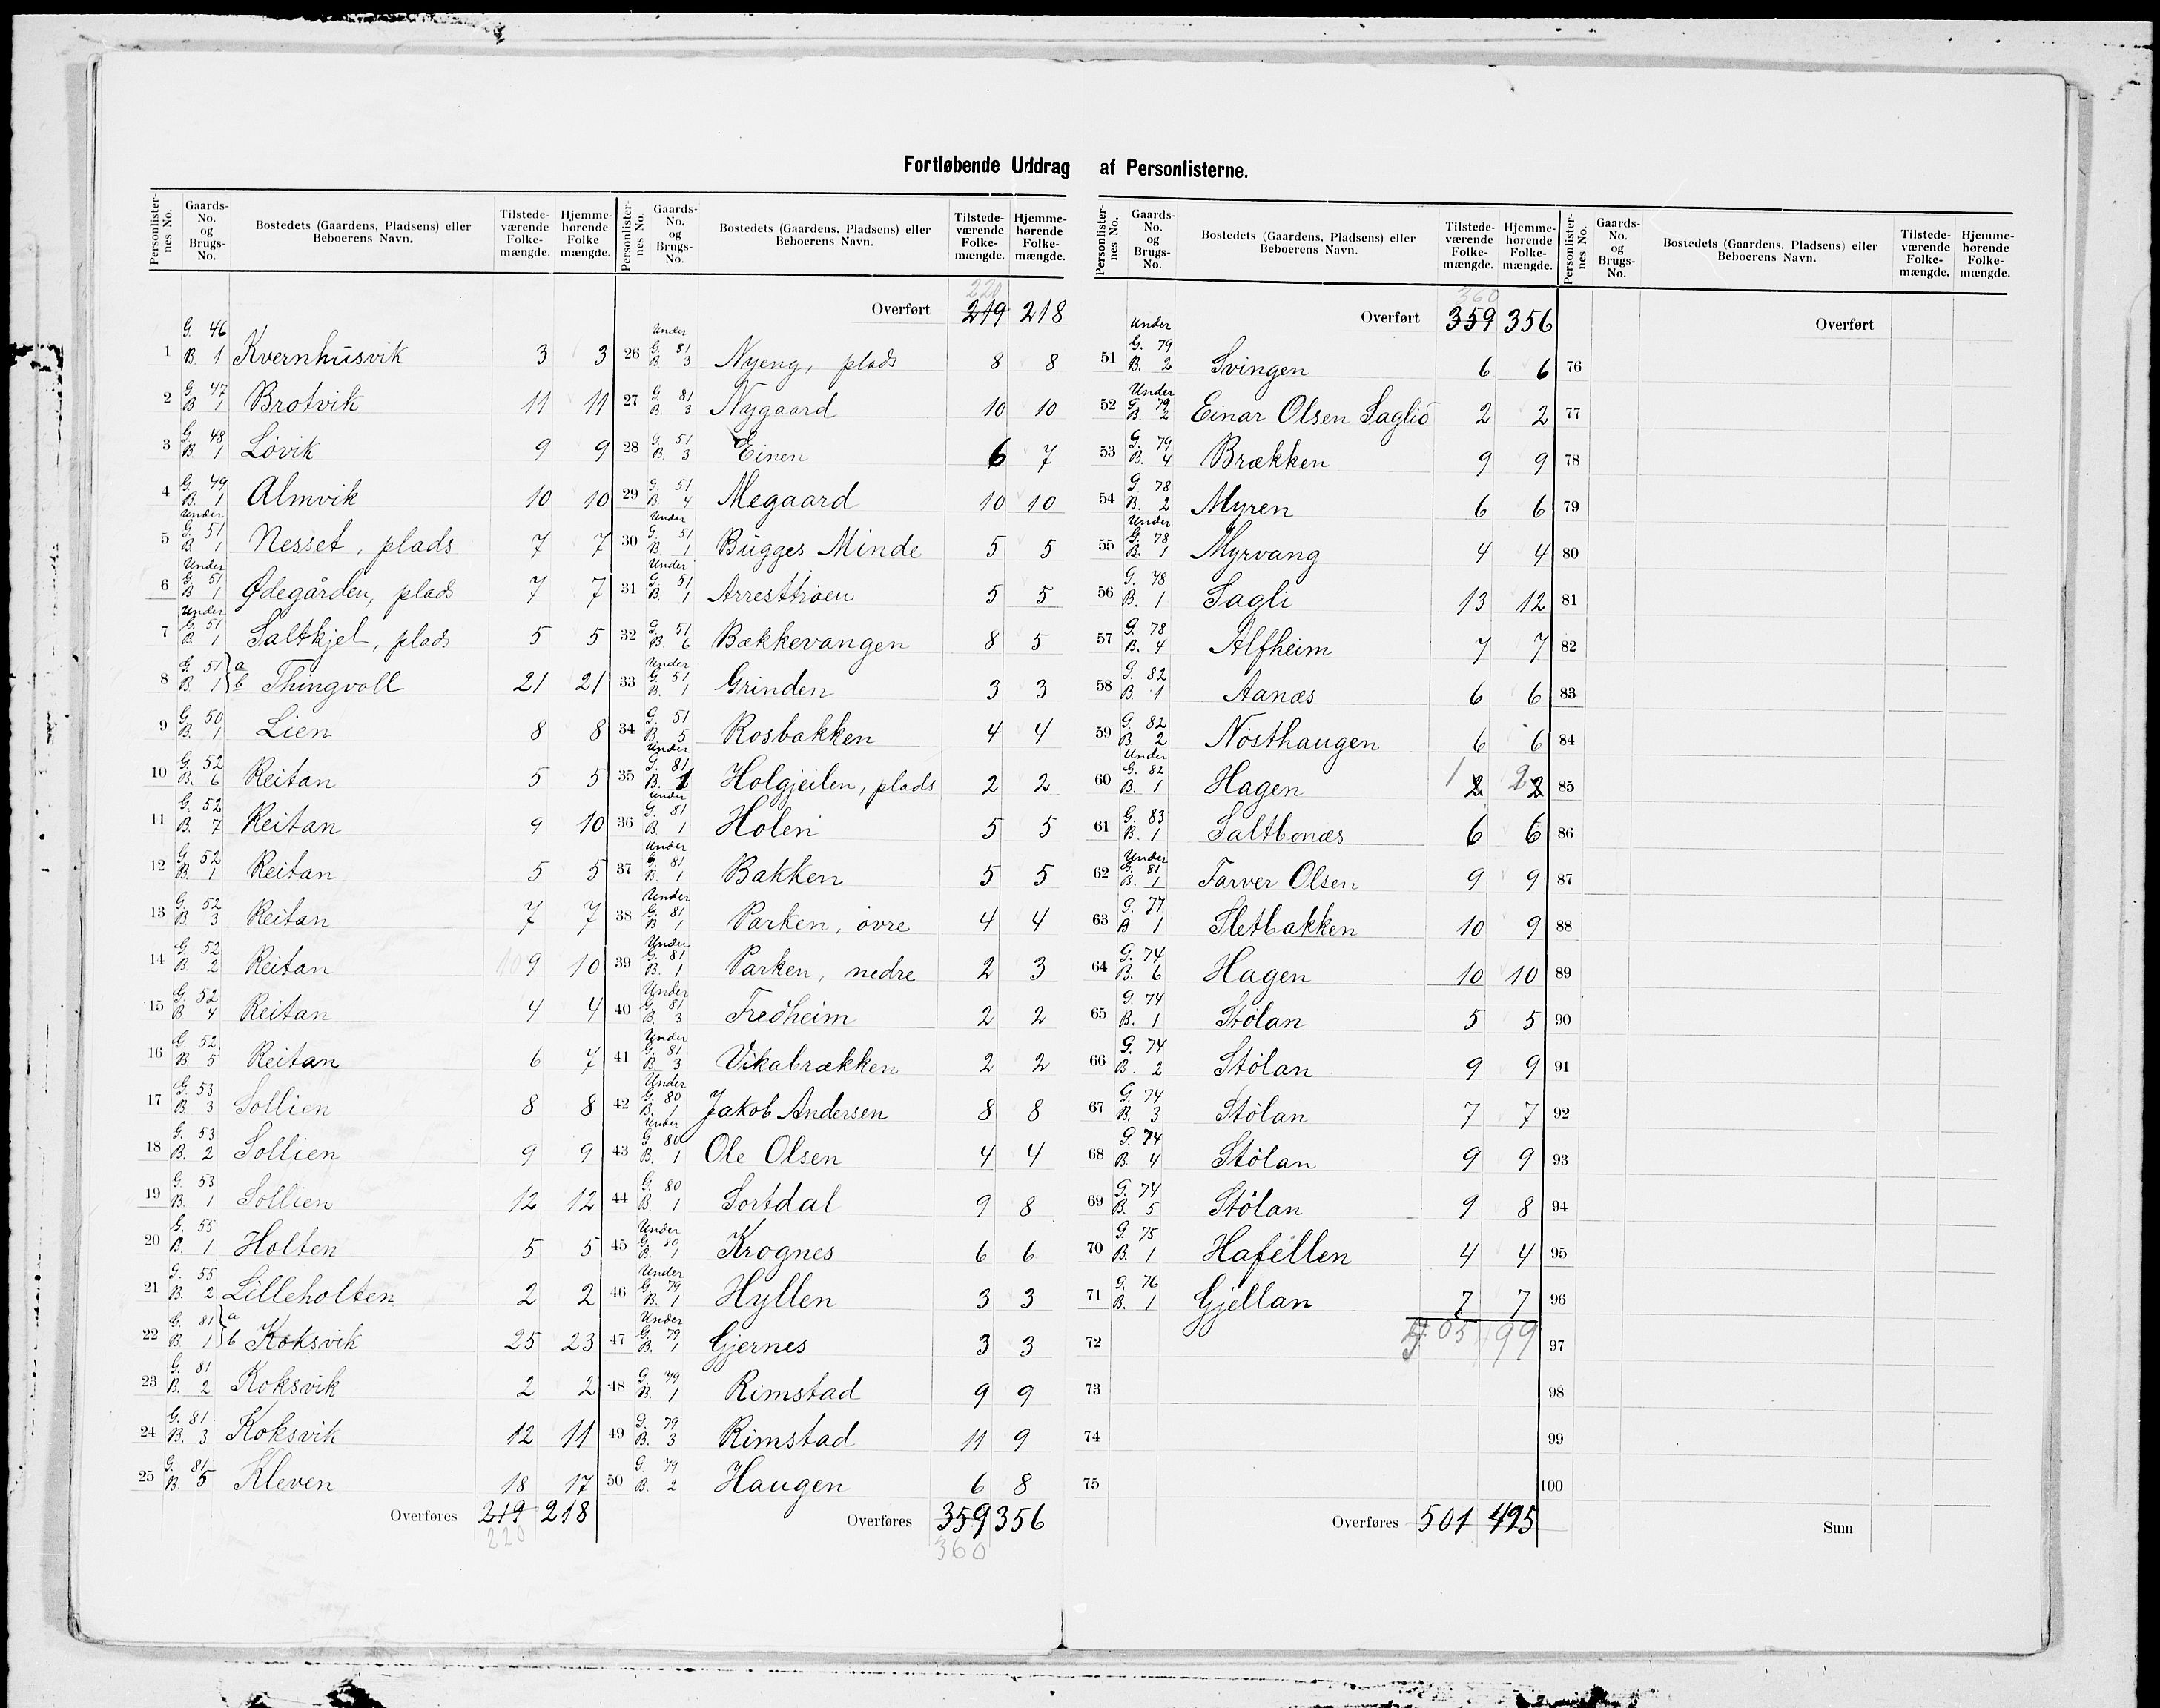 Fortløbende Uddrag af Personlisterne.
Personlister-nes No. Gaards-No. og Brugs-No. Bostedets (Gaardens, Pladsens) eller Beboerens Navn. Tilstede-værende Folke-mængde. Hjemme-hørende Folke mængde.
1 G. 46 B. 1 Kvernhusvik 3 3
2 G. 47 B 1 Brotvik 11 11
3 G. 48 B. 1 Lövik 9 9
4 G. 49 B. 1 Almvik 10 10
5 Under G. 51 B. 1 Nesset, plads 7 7
6 Under G. 51 B 1 Ødegården, plads 7 7
7 Under G. 51 B 1 Saltkjel, plads 5 5
8 G. 51 B 1 } a b Thingvoll 21 21
9 G. 50 B. 1 Lien 8 8
10 G. 52 B. 6 Reitan 5 5
11 G. 52 B. 7 Reitan 9 10
12 G. 52 B 1 Reitan 5 5
13 G. 52 B 3 Reitan 7 7
14 G. 52 B. 2 Reitan 10 9 10
15 G. 52 B. 4 Reitan 4 4
16 G. 52. B. 5 Reitan 6 7
17 G. 53 B. 3 Sollien 8 8
18 G. 53 B. 2 Sollien 9 9
19 G. 53 B. 1 Sollien 12 12
20 G. 55 B. 1 Holten 5 5
21 G. 55 B. 2 Lilleholten 2 2
22 G. 81 B. 1 } a b Koksvik 25 23
23 G. 81 B. 2 Koksvik 2 2
24 G. 81 B. 3 Koksvik 12 11
25 G. 81 B. 5 Kleven 18 17
Overføres 219 218
220
Personlister-nes No. Gaards-No. og Brugs-No. Bostedets (Gaardens, Pladsens) eller Beboerens Navn. Tilstede-værende Folke-mængde. Hjemme-hørende Folke-mængde.
220
Overført 219 218
26 Under G. 81 B. 3 Nyeng, plads 8 8
27 G. 81 B. 3 Nygaard 10 10
28 G. 51 B. 3 Einen 6 7
29 G. 51 B. 4 Megaard 10 10
30 Under G. 51 B. 1 Bugges Minde 5 5
31 Under G. 51 B. 1 Arresttröen 5 5
32 G. 51 B. 6 Bækkevangen 8 5
33 Under G. 51 B. 1 Grinden 3 3
34 G. 51 B. 5 Rosbakken 4 4
35 Under G. 81 B. 1 Holgjeilen, plads 2 2
36 Under G. 81 B. 1 Holen 5 5
37 Under G. 81 B. 1 Bakken 5 5
38 Under G. 81 B 1 Parken, övre 4 4
39 Under G. 81 B. 1 Parken, nedre 2 3
40 Under G. 81 B. 3 Fredheim 2 2
41 Under G. 81 B. 3 Vikabrækken 2 2
42 Under G. 80 B. 1 Jakob Andersen 8 8
43 Under G 80 B. 1 Ole Olsen 4 4
44 G. 80 B 1 Sortdal 9 8
45 Under G. 80 B. 1 Krognes 6 6
46 Under G. 79 B. 1 Hyllen 3 3
47 Under G. 79 B. 1 Gjernes 3 3
48 G. 79 B. 1 Rimstad 9 9
49 G. 79 B. 3 Rimstad 11 9
50 G. 79 B. 2 Haugen 6 8
Overføres 359 356
360
Personlister-nes No. Gaards-No. og Brugs-No. Bostedets (Gaardens, Pladsens) eller Beboerens Navn. Tilstede-værende Folke-mængde. Hjemme-hørende Folke-mængde.
360
Overført 359 356
51 Under G. 79 B. 2 Svingen 6 6
52 Under G. 79 B. 2 Einar Olsen Saglid 2 2
53 G. 79 B. 4 Brækken 9 9
54 G 78 B. 2 Myren 6 6
55 Under G. 78 B. 1 Myrvang 4 4
56 G. 78 B. 1 Sagli 13 12
57 G. 78 B. 4 Alfheim 7 7
58 G. 82 B. 1 Aanæs 6 6
59 G. 82 B. 2 Nösthaugen 6 6
60 Under G. 82 B. 1 Hagen 1 2 2 2
61 G. 83 B. 1 Saltbonæs 6 6
62 Under G. 81 B. 1 Farver Olsen 9 9
63 G. 77 B 1 Sletbakken 10 9
64 G. 74 B. 6 Hagen 10 10
65 G. 74 B. 1 Stölan 5 5
66 G. 74 B. 2 Stölan 9 9
67 G. 74 B. 3 Stölan 7 7
68 G. 74 B. 4 Stölan 9 9
69 G. 74 B. 5 Stölan 9 8
70 G. 75 B. 1 Hafellen 4 4
71 G. 76 B. 1 Gjellan 7 7
72
73
74
75
Overføres 501 495
Personlister-nes No. Gaards-No. og Brugs-No. Bostedets (Gaardens, Pladsens) eller Beboerens Navn. Tilstede-værende Folke-mængde. Hjemme-hørende Folke-mængde.
Overført
76
77
78
79
80
81
82
83
84
85
86
87
88
89
90
91
92
93
94
95
96
97
98
99
100
Sum